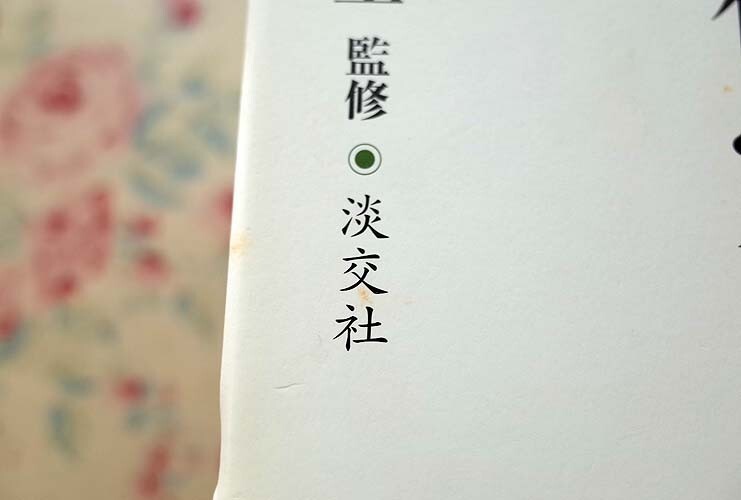 監修
淡交社